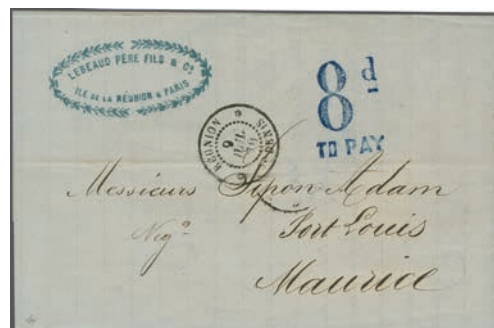 LEBEAUD PÈRE FILS & Cⁱᵉ
ILE DE LA RÉUNION & PARIS
8 d
TO PAY
RÉUNION
9
JUIL
ST DENIS
Messieurs Pipon Adam
Negᵗˢ
Port Louis
Maurice